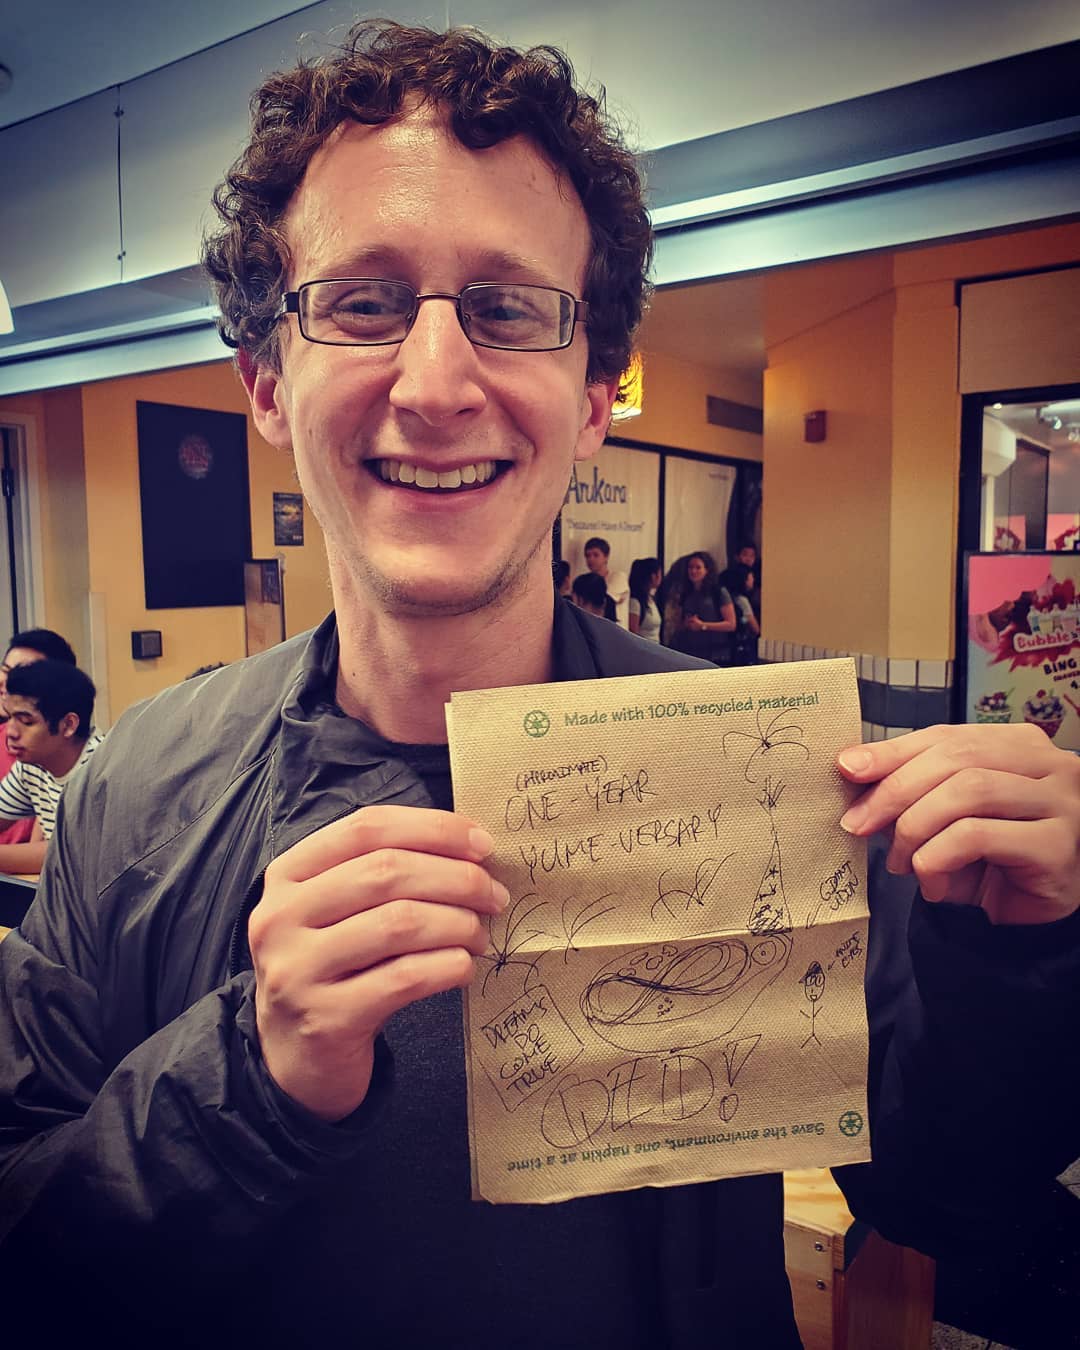 Arukara
"Because I Have A Dream"
Bubble
BING
Made with 100% recycled material
(APPROXIMATE)
ONE-YEAR
YUME-VERSARY
GIANT
UDON
ANIME
EYES
DREAMS
DO
COME
TRUE
Save the environment, one napkin at a time